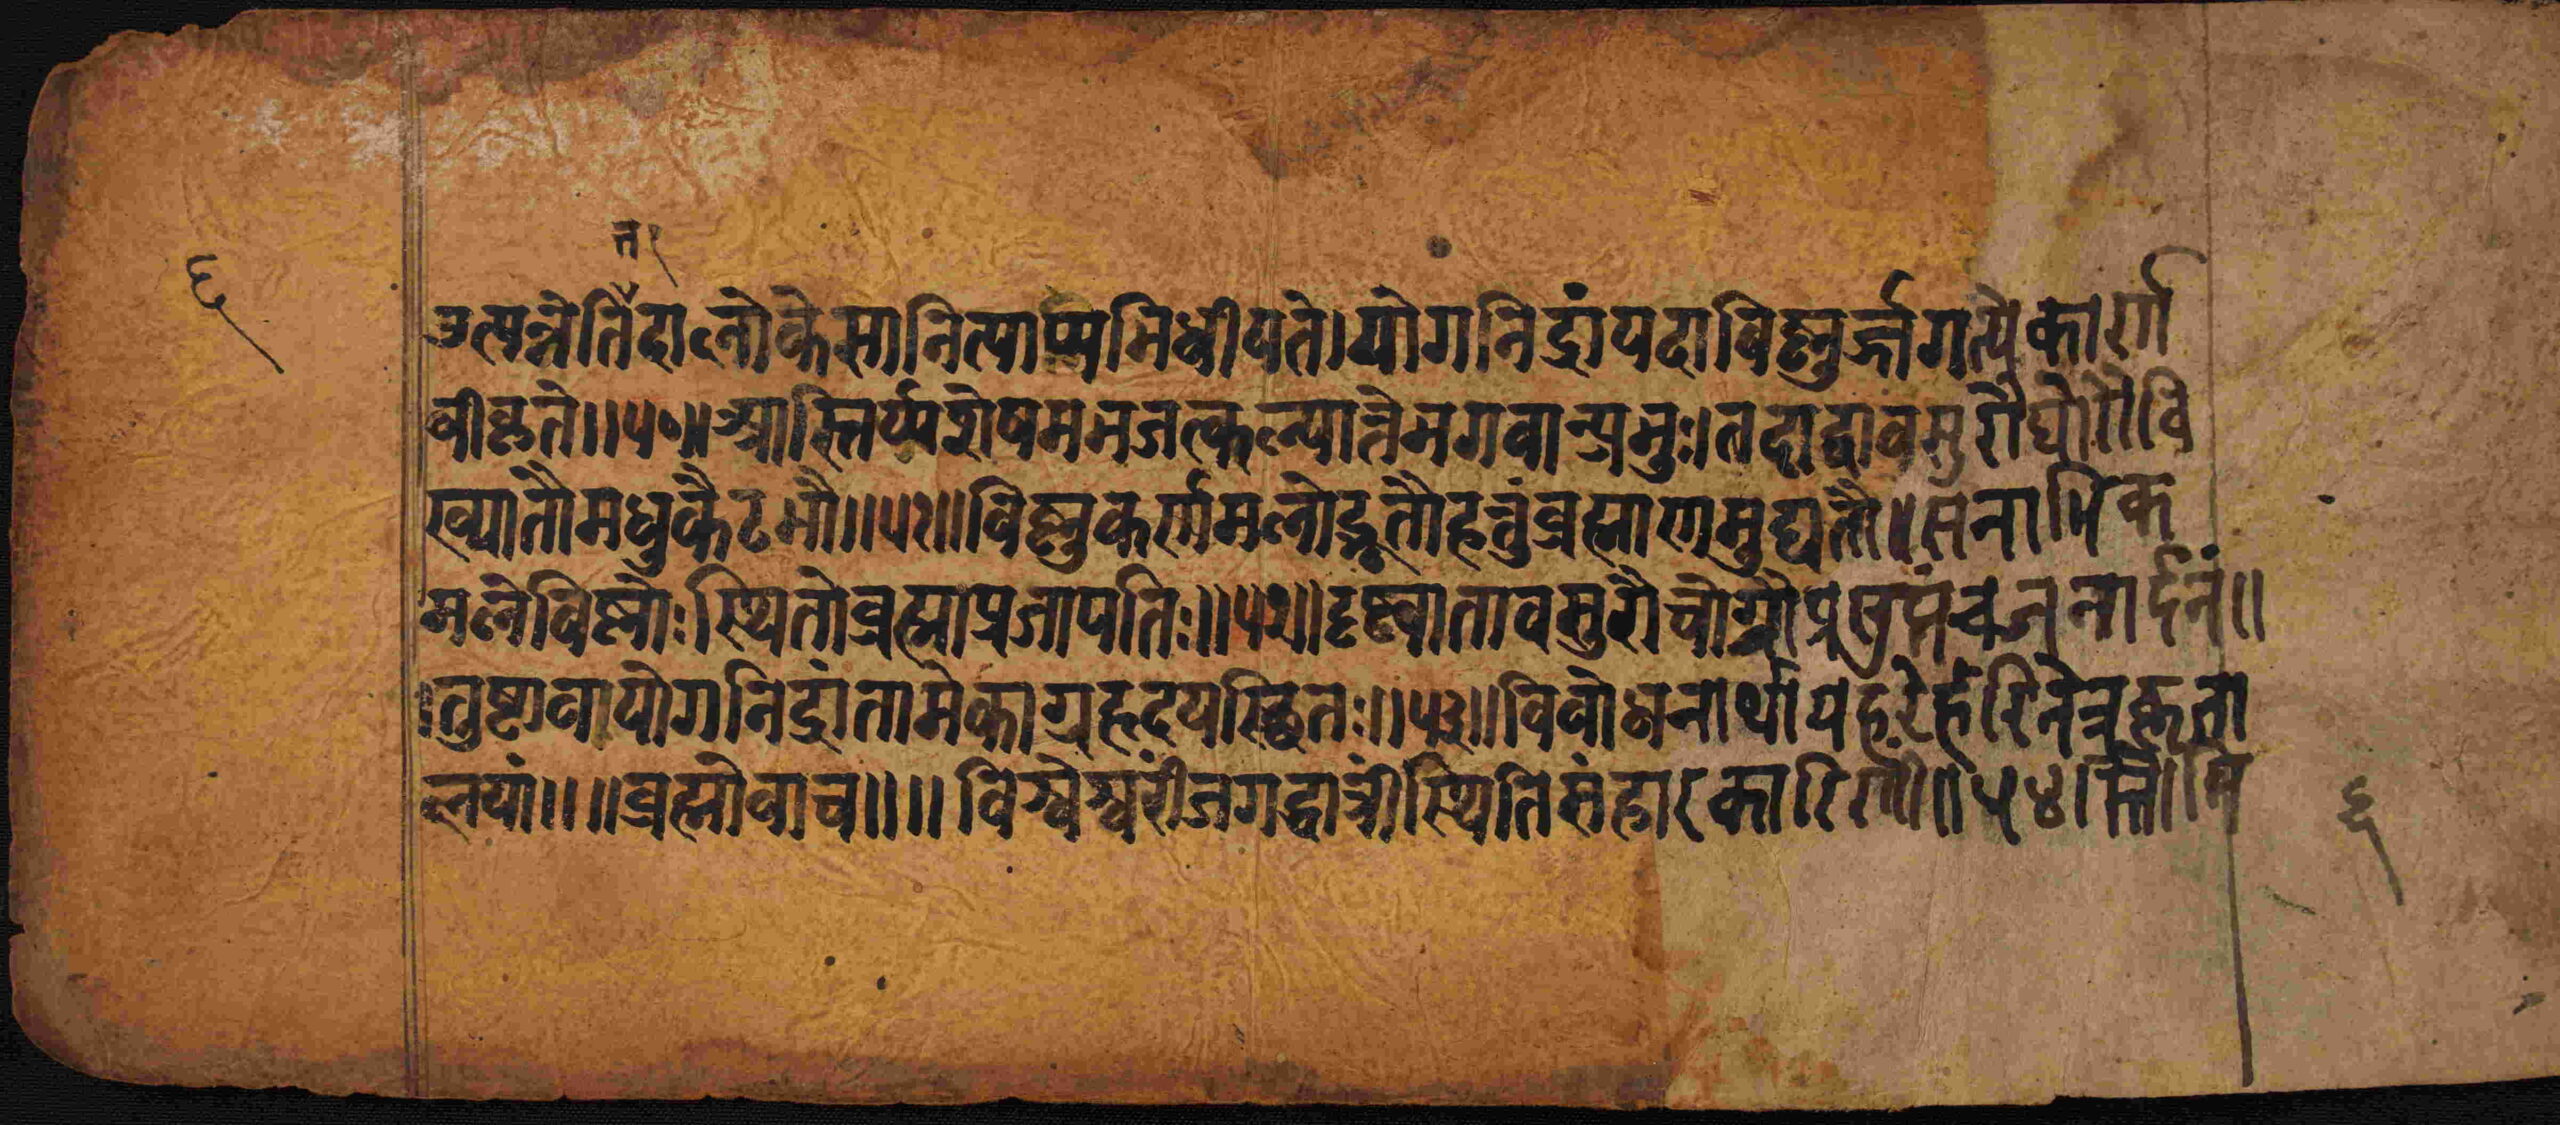 त
६
उत्पन्नेतिदालोकेसानित्याप्यभिधीयते।योगनिद्रांयदाविष्णुर्ज्जगत्येकार्ण
वीकृते॥५०॥आस्तिर्य्यशेषमभजत्कल्पान्तेभगवान्प्रभुः।तदाद्वावसुरौघोरौवि
ख्यातौमधुकैटभौ॥५१॥विष्णुकर्णमलोद्भूतौहन्तुंब्रह्माणमुद्यतौ॥सनाभिक
मलेविष्णोःस्थितोब्रह्माप्रजापतिः॥५२॥दृष्ट्वातावसुरौचोग्रौप्रसुप्तंचजनार्दनं॥
।तुष्टावायोगनिद्रांतामेकाग्रहृदयस्थितः॥५३॥विबोधनार्थायहरेर्हरिनेत्रकृता
लयां॥॥ब्रह्मोवाच॥॥विश्वेश्वरींजगद्धात्रींस्थितिसंहारकारिणीं॥५४।स्तौमि
६